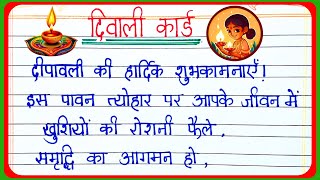 दिवाली कार्ड
दीपावली की हार्दिक शुभकामनाएँ!
इस पावन त्योहार पर आपके जीवन में
खुशियों की रोशनी फैले,
समृद्धि का आगमन हो,